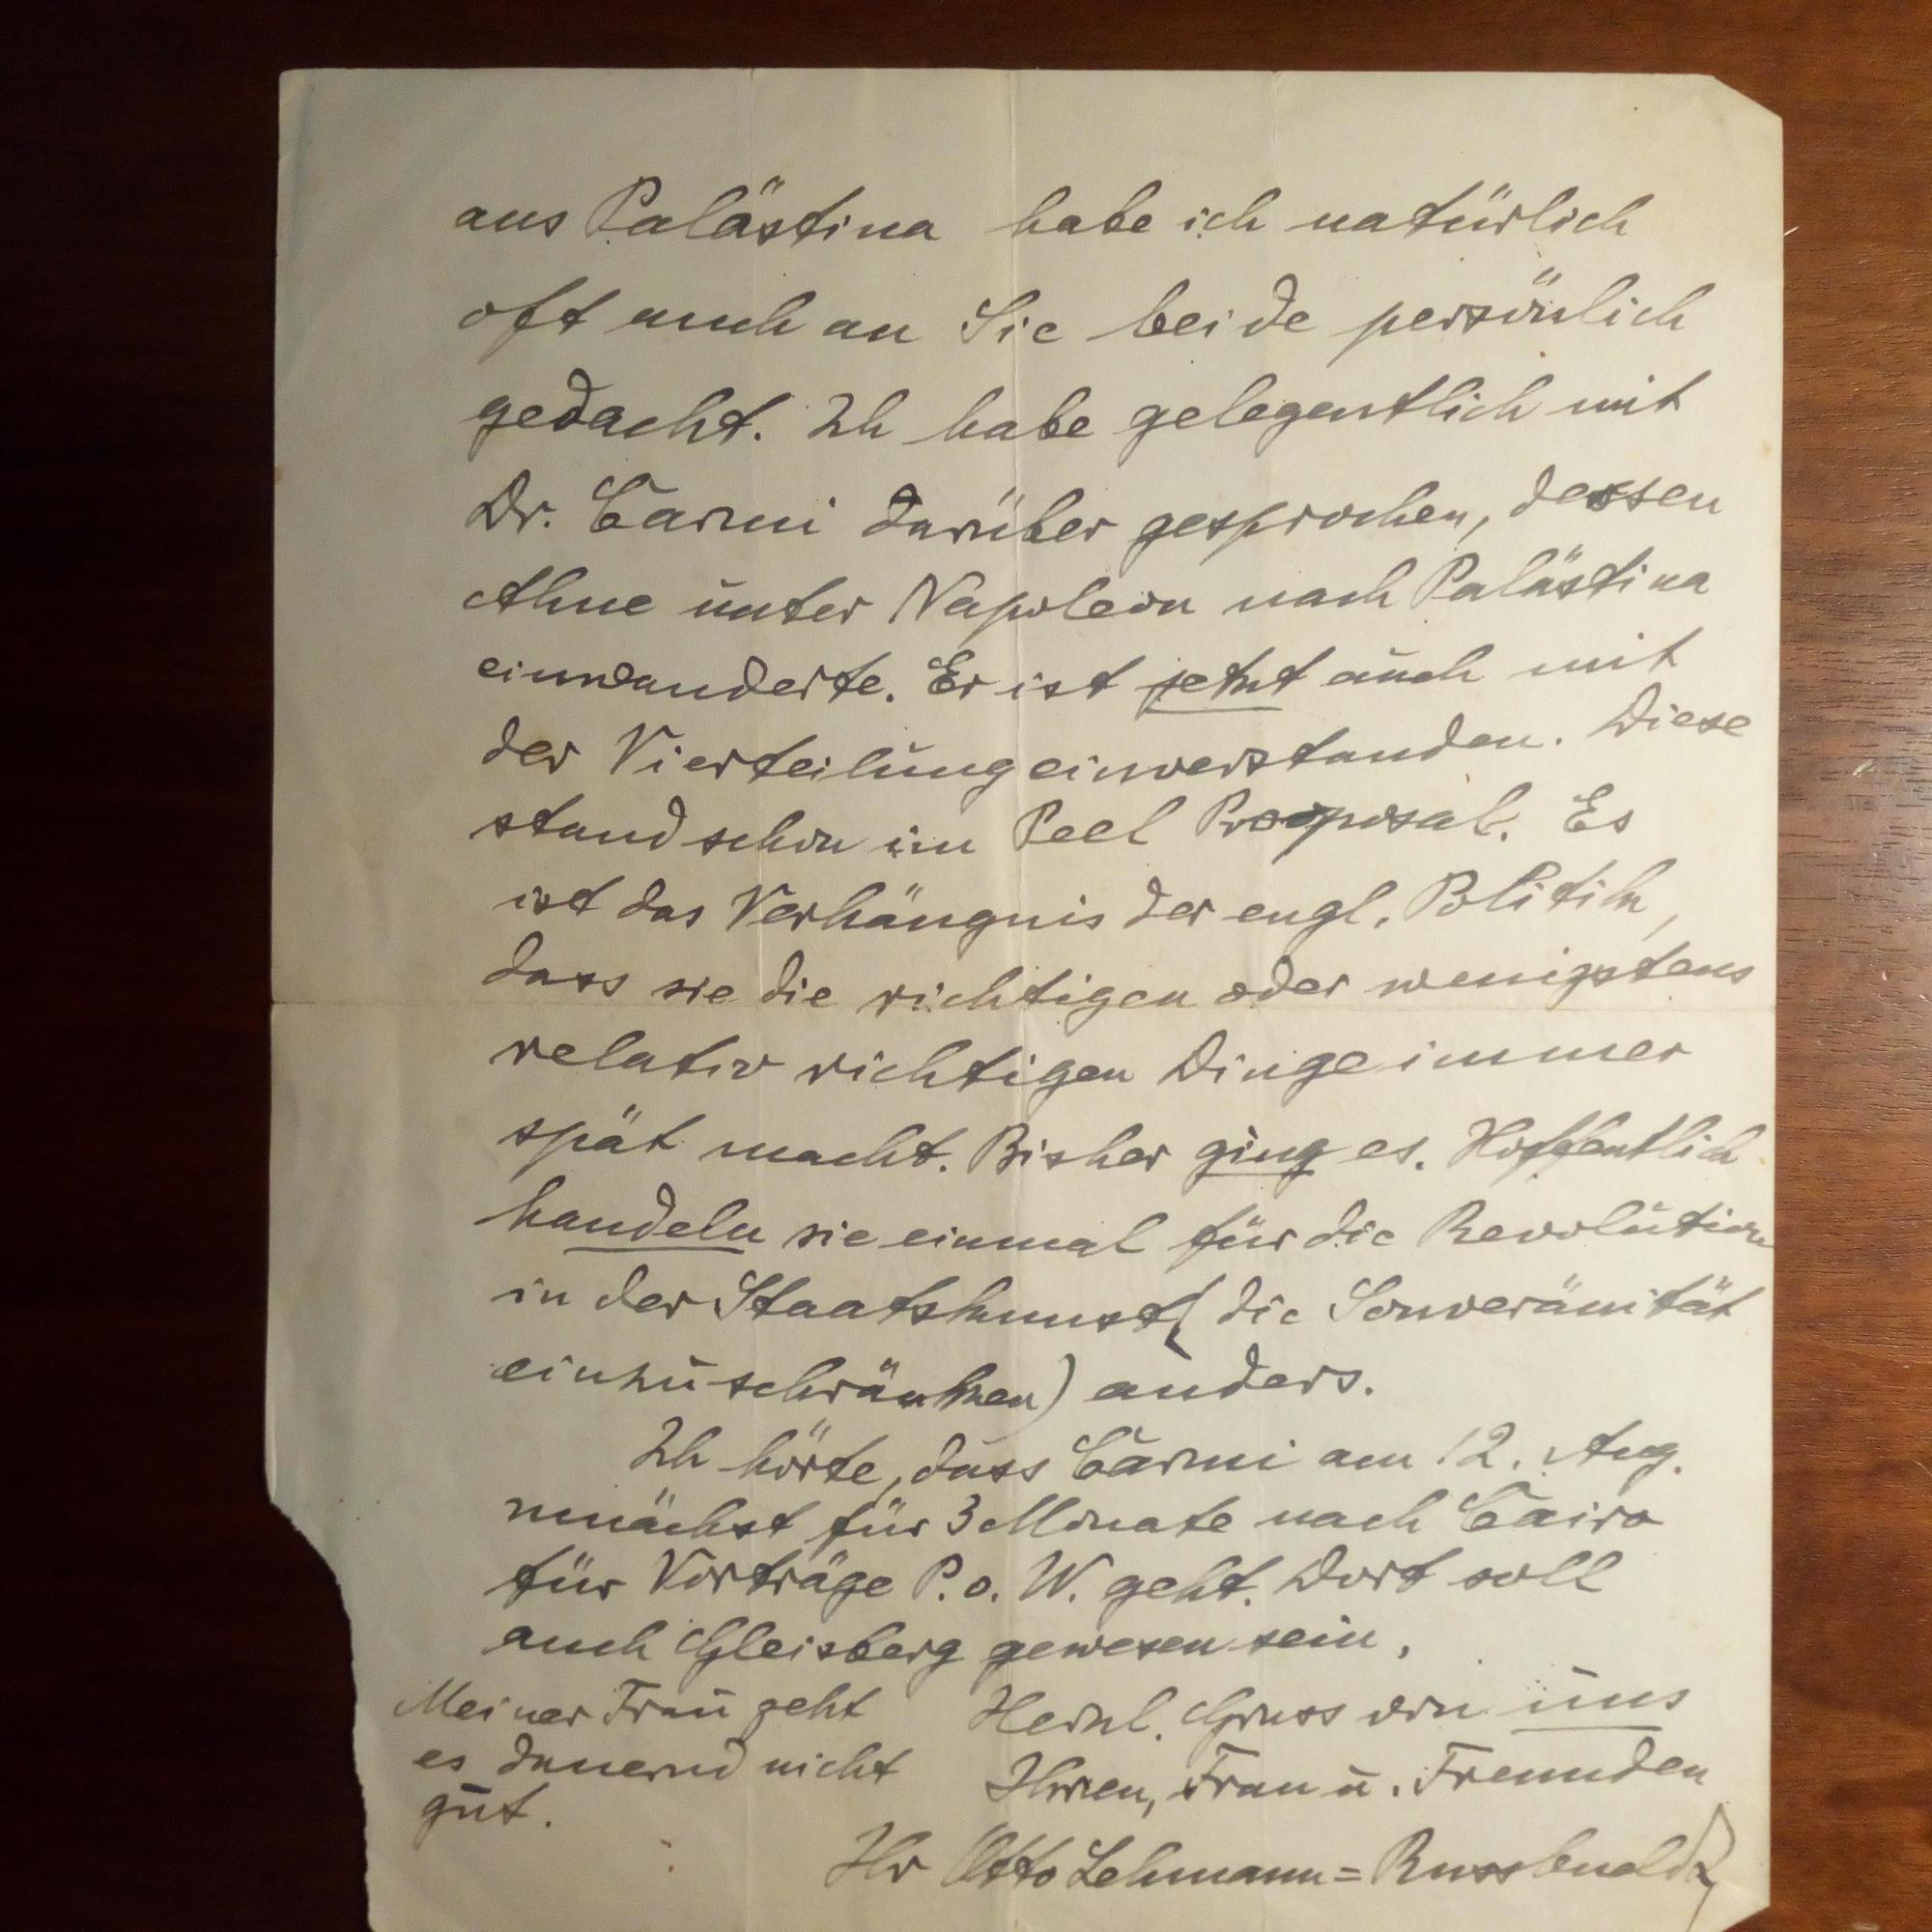 aus Palästina habe ich natürlich
oft auch an Sie beide persönlich
gedacht. Ich habe gelegentlich mit
Dr. Carmi darüber gesprochen, dessen
Ahne unter Napoleon nach Palästina
einwanderte. Er ist jetzt auch mit
der Vierteilung einverstanden. Diese
stand schon im Peel Proposal. Es
ist das Verhängnis der engl. Politik,
dass sie die richtigen oder wenigstens
relativ richtigen Dinge immer
spät macht. Bisher ging es. Hoffentlich
handeln sie einmal für die Revolution
in der Staatskunst (die Souveränität
einzuschränken) anders.
Ich hörte, dass Carmi am 12. Aug.
zunächst für 3 Monate nach Cairo
für Vorträge P.o.W. geht. Dort soll
auch Gleisberg gewesen sein.
Meiner Frau geht
es dauernd nicht
gut.
Herzl. Gruss von uns
Ihnen, Frau u. Freunden
Ihr Otto Lehmann=Russbueldt